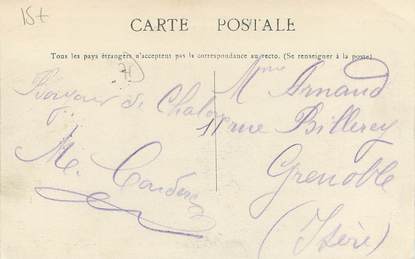 15+
CARTE POSTALE
Tous les pays étrangers n'acceptent pas la correspondance au recto. (Se renseigner à la poste).
Mme Arnaud
Bonjour de Chaloz
11 rue Billerey
M. Cordier
Grenoble
(Isère)